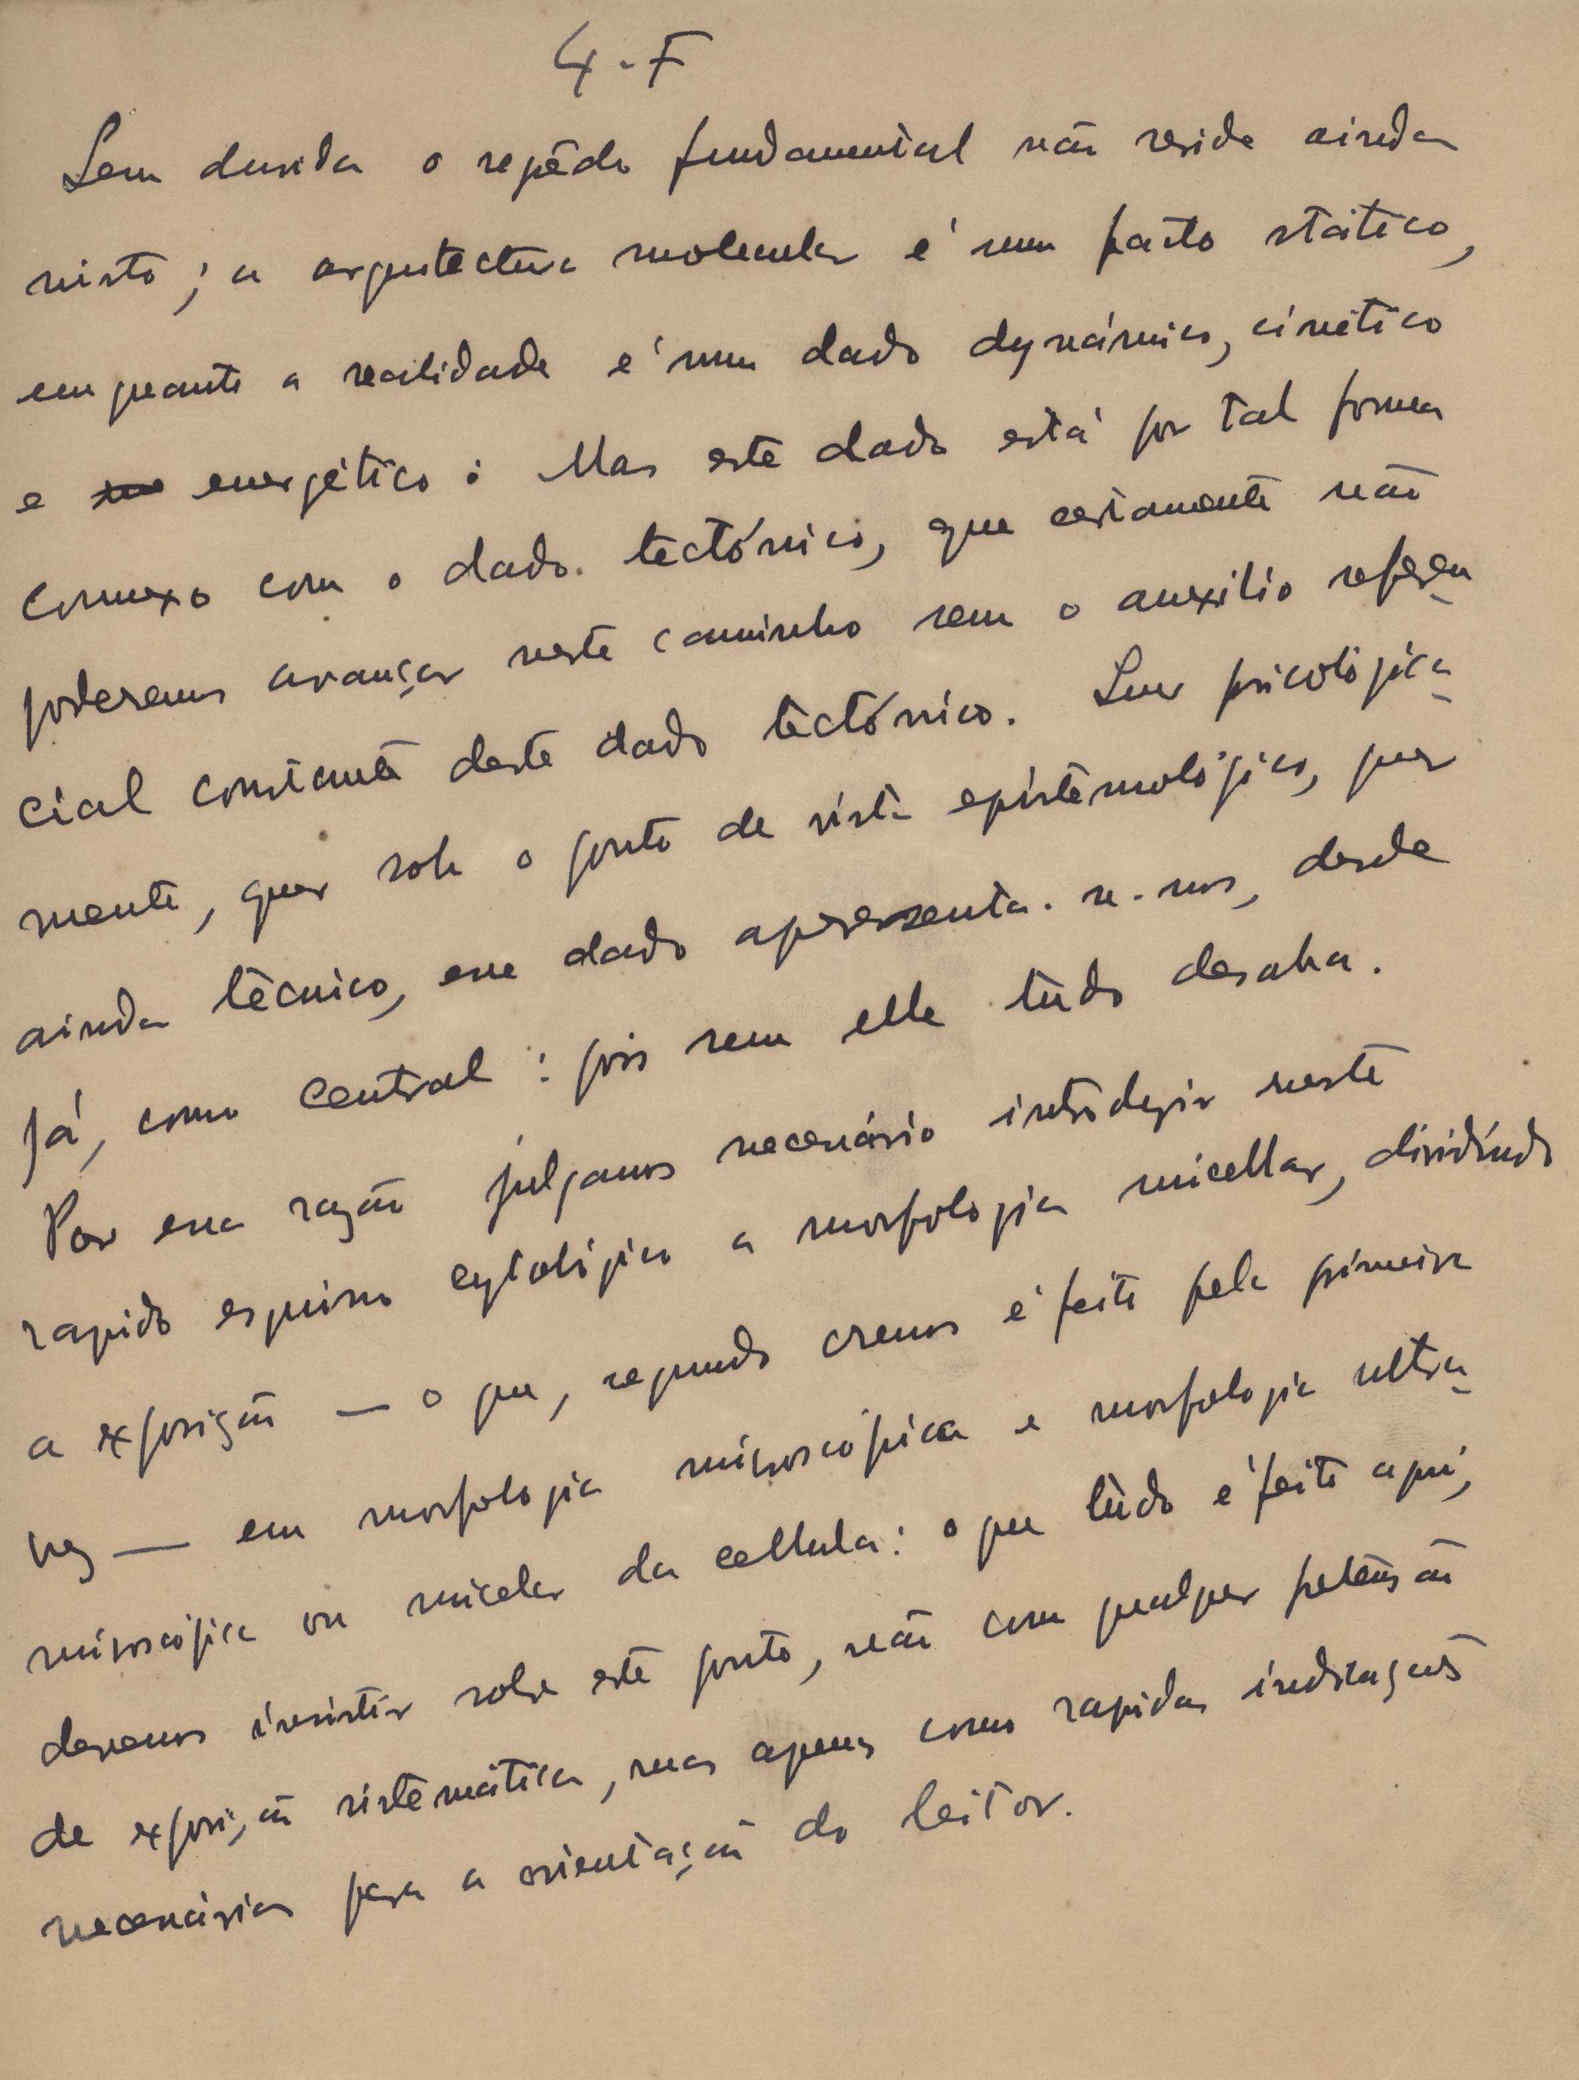 4-F
Sem duvida o segrêdo fundamental não reside ainda
nisto; a arquitectura molecular é um facto stático,
emquanto a realidade é um dado dynámico, cinético
e energético: Mas este dado está por tal forma
connexo com o dado tectónico, que certamente não
poderemos avançar neste caminho sem o auxilio referen-
cial constante deste dado tectónico. Quer psicológica-
mente, quer sob o ponto de vista epistemológico, quer
ainda técnico, esse dado apresenta-se-nos, desde
já, como central: pois sem elle tùdo desaba.
Por essa razão julgamos necessário introduzir neste
rapido esquisso cytológico a morfologia micellar, dividindo
a exposição — o que, segundo cremos é feito pela primeira
vez — em morfologia microscópica e morfologia ultra-
microscópica ou micelar da cellula: o que tùdo é feito aqui,
devemos insistir sobre este ponto, não com qualquer pretensão
de exposição sistemática, mas apenas como rapidas indicações
necessárias para a orientação do leitor.